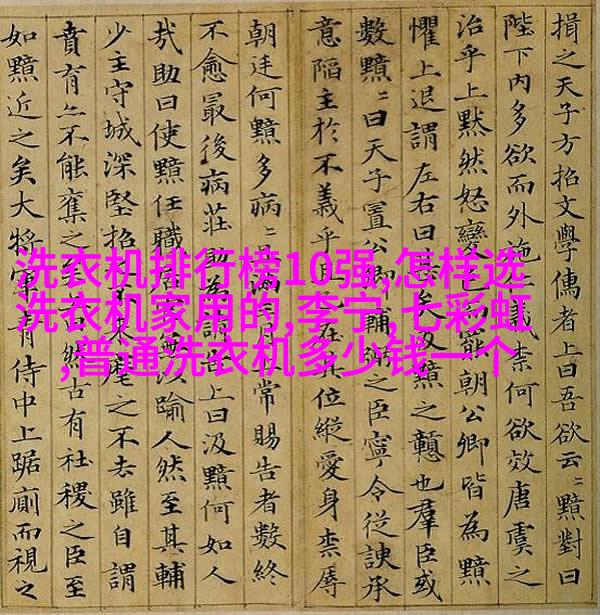 揖之天子方招文學儒者上曰吾欲云〻黯對曰
陛下内多欲而外施柰何欲效唐虞之
治乎上黙然怒變色而罷朝公卿皆為黯
懼上退謂左右曰甚矣汲黯之戇也羣臣或
數黯〻曰天子置公卿輔弼之臣寧令從諛承
意陷主於不義乎且已在其位縱愛身柰辱
朝廷何黯多病滿三月上常賜告者數終
不愈最後病莊助為請告上曰汲黯何如人
㦲助曰使黯任職居官踰人然至其輔
少主守城深堅招之不来麾之不去雖自謂
賁育亦不能奪之然古有社稷之臣至
如黯近之矣大將軍青侍中上踞廁而視之
洗衣机排行榜10强,怎样选
洗衣机家用的,李宁,七彩虹
,普通洗衣机多少钱一个